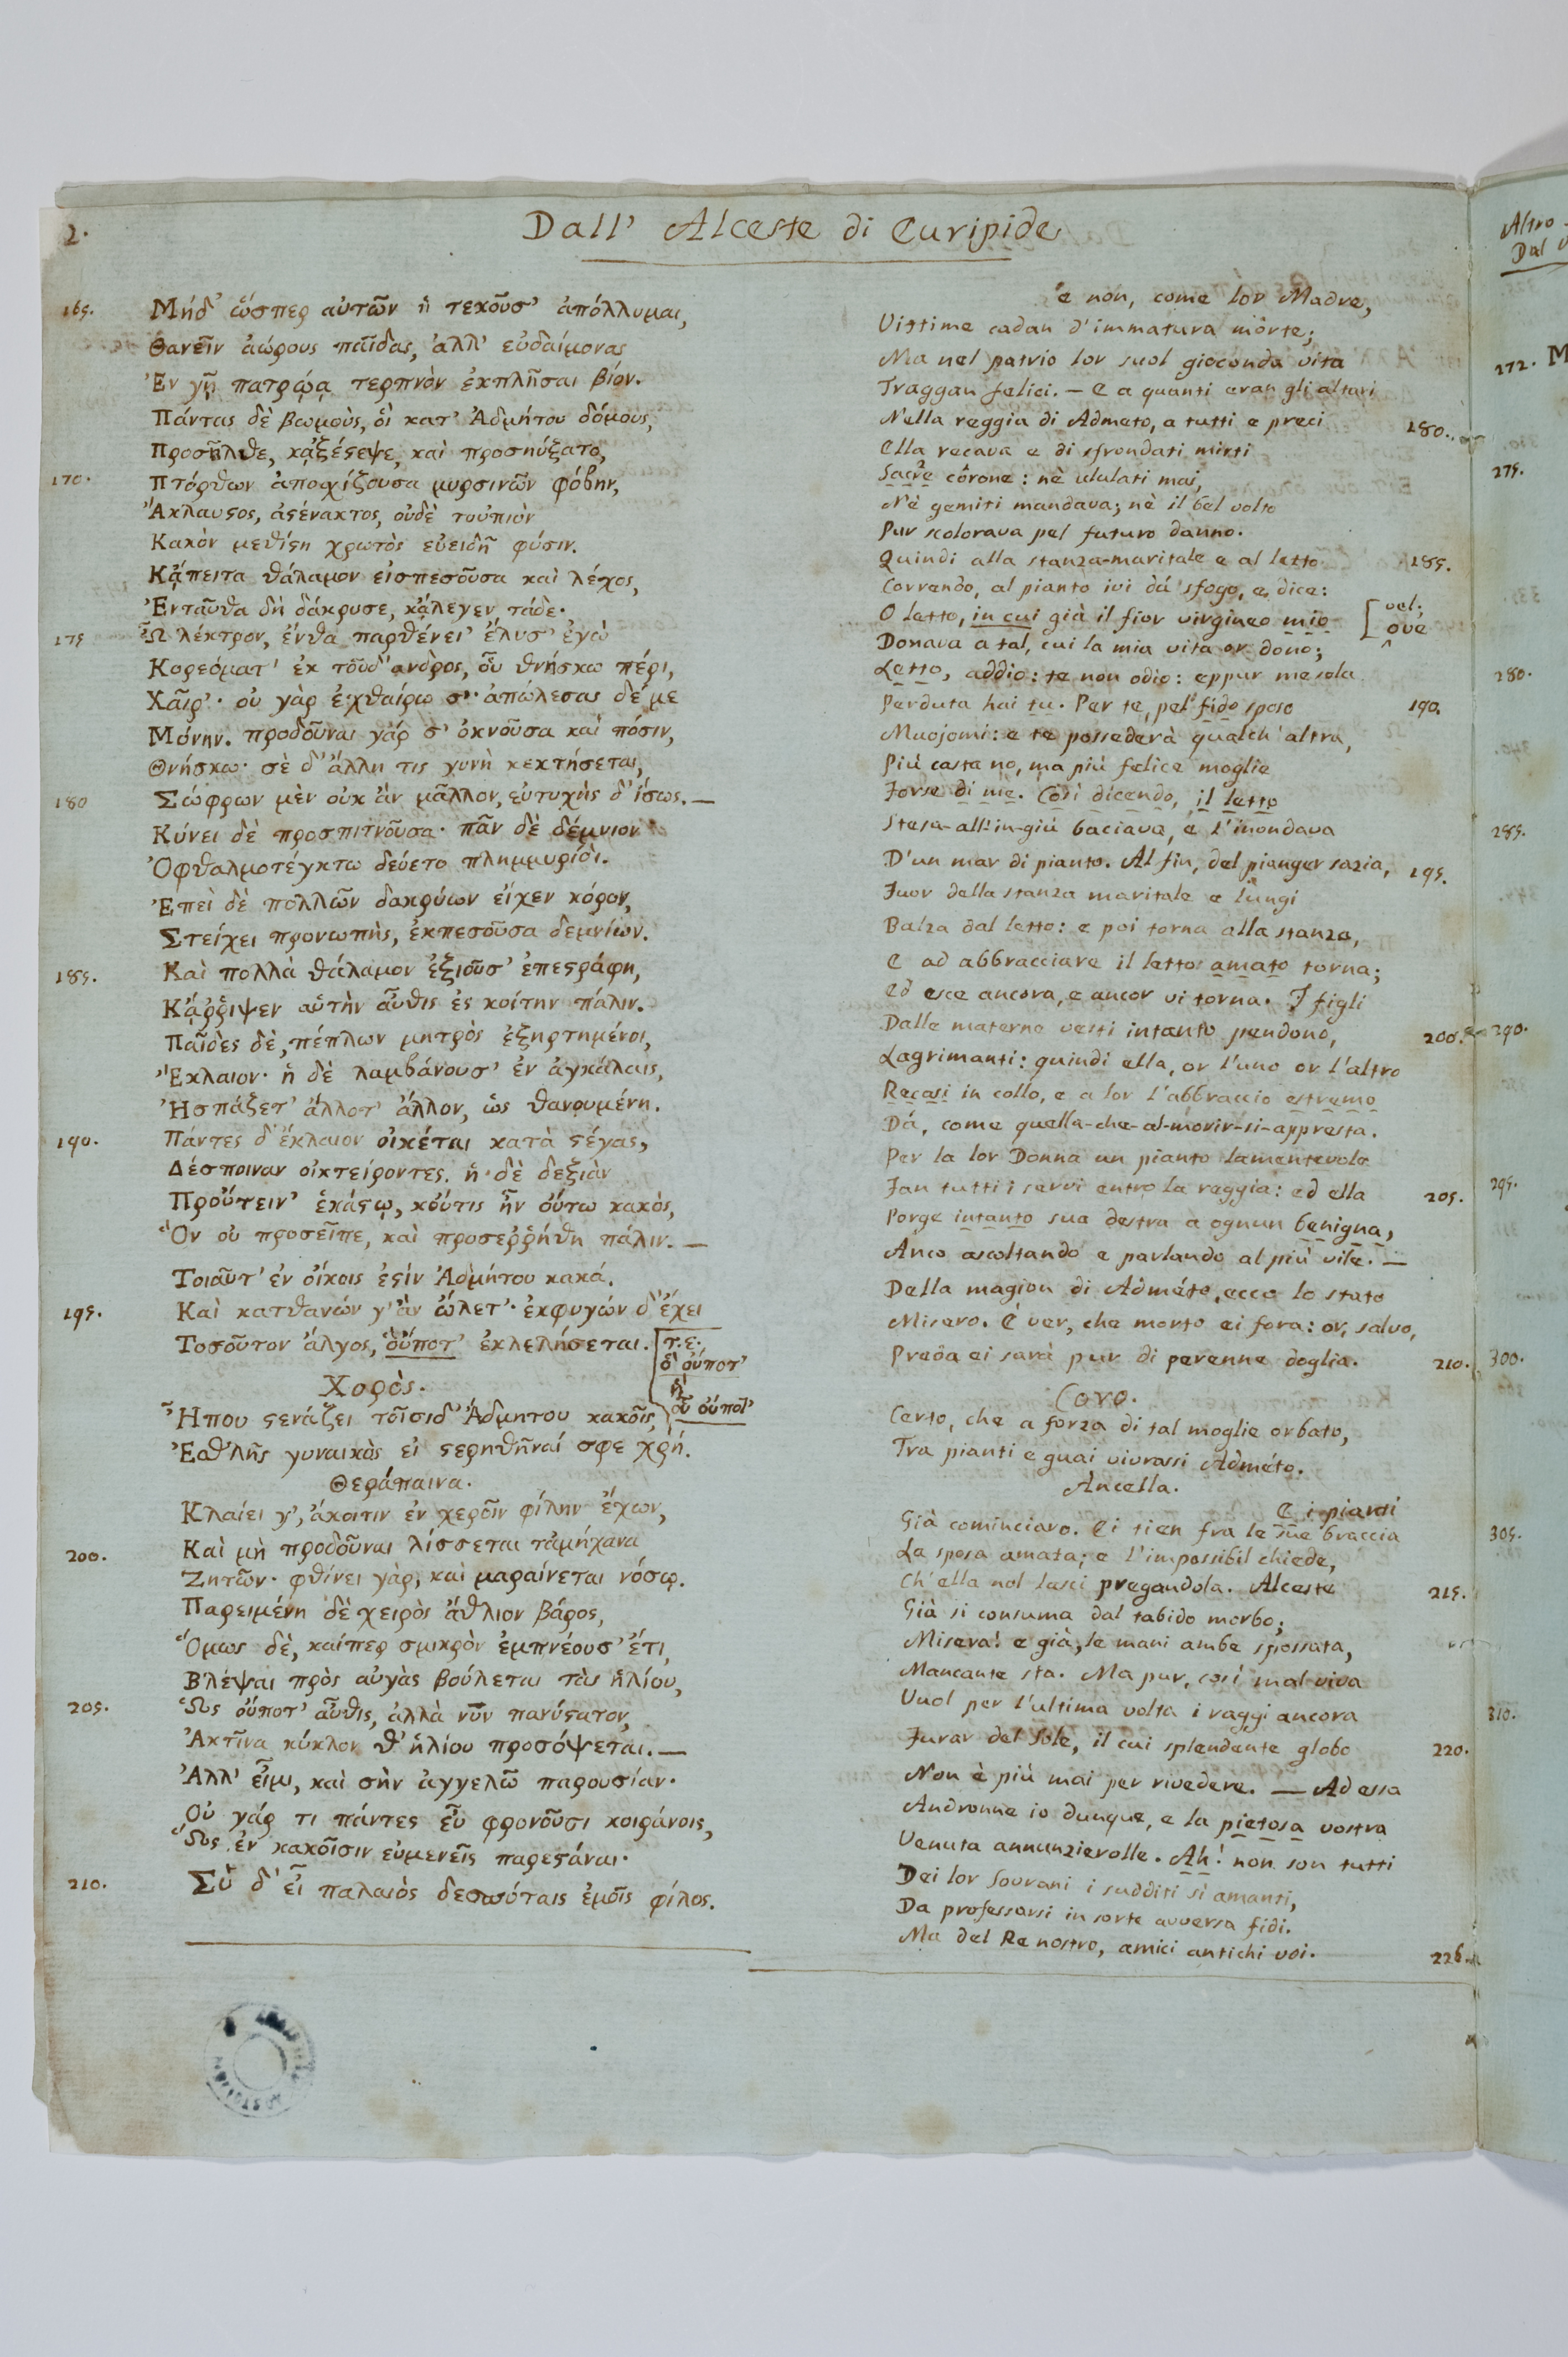 2.
Dall' Alceste di Euripide
165. Μήδ' ὥσπερ αὐτῶν ἡ τεκοῦσ' ἀπόλλυμαι,
Θανεῖν ἀώρους παῖδας, ἀλλ' εὐδαίμονας
Ἐν γῇ πατρῴᾳ τερπνὸν ἐκπλῆσαι βίον.
Πάντας δὲ βωμοὺς, ὁὶ κατ' Ἀδμήτου δόμους,
Προσῆλθε, κᾀξέϛεψε, καὶ προσηύξατο,
170. Πτόρθων ἀποσχίζουσα μυρσινῶν φόβην,
Ἄκλαυϛος, ἀϛένακτος, οὐδὲ τοὐπιὸν
Κακὸν μεθίϛη χρωτὸς εὐειδῆ φύσιν.
Κᾄπειτα θάλαμον εἰσπεσοῦσα καὶ λέχος,
Ἐνταῦθα δὴ δάκρυσε, κᾄλεγεν τάδε·
175 Ὦ λέκτρον, ἔνθα παρθένει' ἔλυσ' ἐγὼ
Κορεύματ' ἐκ τοῦδ' ανδρὸς, οὗ θνήσκω πέρι,
Χαῖρ'· οὐ γὰρ ἐχθαίρω σ'· ἀπώλεσας δέ με
Μόνην. προδοῦναι γάρ σ' ὀκνοῦσα καὶ πόσιν,
Θνήσκω· σὲ δ' ἄλλη τις γυνὴ κεκτήσεται,
180 Σώφρων μὲν οὐκ ἂν μᾶλλον, εὐτυχὴς δ' ἴσως. —
Κύνει δὲ προσπιτνοῦσα· πᾶν δὲ δέμνιον
Ὀφθαλμοτέγκτω δεύετο πλημμυρίδι.
Ἐπεὶ δὲ πολλῶν δακρύων εἶχεν κόρον,
Στείχει προνωπὴς, ἐκπεσοῦσα δεμνίων.
185. Καὶ πολλὰ θάλαμον ἐξιοῦσ' ἐπεϛράφη,
Κᾄῤῥιψεν αὑτὴν αὖθις ἐς κοίτην πάλιν.
Παῖδες δὲ, πέπλων μητρὸς ἐξηρτημένοι,
Ἔκλαιον· ἡ δὲ λαμβάνουσ' ἐν ἀγκάλαις,
Ἠσπάζετ' ἄλλοτ' ἄλλον, ὡς θανουμένη.
190. Πάντες δ' ἔκλαιον οἰκέται κατὰ ϛέγας,
Δέσποιναν οἰκτείροντες. ἡ δὲ δεξιὰν
Προὔτειν' ἑκάϛῳ, κοὔτις ἦν οὕτω κακὸς,
Ὃν οὐ προσεῖπε, καὶ προσεῤῥήθη πάλιν. —
Τοιαῦτ' ἐν οἴκοις ἐϛὶν Ἀδμήτου κακά.
195. Καὶ κατθανών γ' ἂν ὤλετ'· ἐκφυγών δ' ἔχει
Τοσοῦτον ἄλγος, οὕποτ' ἐκλελήσεται. [τ. ε.
ὃ οὔποτ'
ἢ
οὗ οὔποτ'
Χορὸς.
Ἦπου ϛενάζει τοῖσιδ' Ἄδμητου κακοῖς,
Ἐσθλῆς γυναικὸς εἰ ϛερηθῆναί σφε χρή.
Θεράπαινα.
Κλαίει γ', ἄκοιτιν ἐν χεροῖν φίλην ἔχων,
200. Καὶ μὴ προδοῦναι λίσσεται τἀμήχανα
Ζητῶν· φθίνει γὰρ, καὶ μαραίνεται νόσῳ.
Παρειμένη δὲ χειρὸς ἄθλιον βάρος,
Ὅμως δὲ, καίπερ σμικρὸν ἐμπνέουσ' ἔτι,
Βλέψαι πρὸς αὐγὰς βούλεται τὰς ἡλίου,
205. Ὡς οὔποτ' αὖθις, ἀλλὰ νῦν πανύϛατον,
Ἀκτῖνα κύκλον θ' ἡλίου προσόψεται. —
Ἀλλ' εἶμι, καὶ σὴν ἀγγελῶ παρουσίαν·
Οὐ γάρ τι πάντες εὖ φρονοῦσι κοιράνοις,
Ὥς ἐν κακοῖσιν εὐμενεῖς παρεϛάναι·
210. Σὺ δ' εἶ παλαιὸς δεσπόταις ἐμοῖς φίλος.
e non, come lor Madre,
Vittime cadan d'immatura morte;
Ma nel patrio lor suol gioconda vita
Traggan felici. — E a quanti eran gli altari
Nella reggia di Admeto, a tutti e preci 180.
Ella recava e di sfrondati mirti
Sacre corone: nè ululati mai,
Nè gemiti mandava; nè il bel volto
Pur scolorava pel futuro danno.
Quindi alla stanza-maritale e al letto 185.
Correndo, al pianto ivi dà sfogo, e dice:
O letto, in cui già il fior virgineo mio [vel: ove
Donava a tal, cui la mia vita or dono;
Letto, addio: te non odio: eppur me sola
Perduta hai tu. Per te, pel fido sposo 190.
Muojomi: e te possederà qualch'altra,
Più casta no, ma più felice moglie
Forse di me. Così dicendo, il letto
Stesa-all'in-giù baciava, e l'inondava
D'un mar di pianto. Al fin, del pianger sazia, 195.
Fuor della stanza maritale e lungi
Balza dal letto: e poi torna alla stanza,
E ad abbracciare il letto amato torna;
Ed esce ancora, e ancor vi torna. I figli
Dalle materne vesti intanto pendono, 200.
Lagrimanti: quindi ella, or l'uno or l'altro
Recasi in collo, e a lor l'abbraccio estremo
Dà, come quella-che-al-morir-si-appresta.
Per la lor Donna un pianto lamentevole
Fan tutti i servi entro la reggia: ed ella 205.
Porge intanto sua destra a ognun benigna,
Anco ascoltando e parlando al più vile. —
Della magion di Admèto, ecco lo stato
Misero. È ver, che morto ei fora: or, salvo,
Preda ei sarà pur di perenne doglia. 210.
Coro.
Certo, che a forza di tal moglie orbato,
Tra pianti e guai vivrassi Admèto.
Ancella.
E i pianti
Già cominciaro. Ei tien fra le sue braccia
La sposa amata; e l'impossibil chiede,
Ch'ella nol lasci pregandola. Alceste 215.
Già si consuma dal tabido morbo;
Misera! e già, le mani ambe spossata,
Mancante sta. Ma pur, così mal viva
Vuol per l'ultima volta i raggi ancora
Furar del Sole, il cui splendente globo 220.
Non è più mai per rivedere. — Ad essa
Andronne io dunque, e la pietosa vostra
Venuta annunzierolle. Ah! non son tutti
Dei lor Sovrani i sudditi sì amanti,
Da professarsi in sorte avversa fidi.
Ma del Re nostro, amici antichi voi. 226.
Altro
Dal
272. Μ
275.
280.
285.
290.
295.
300.
305.
310.